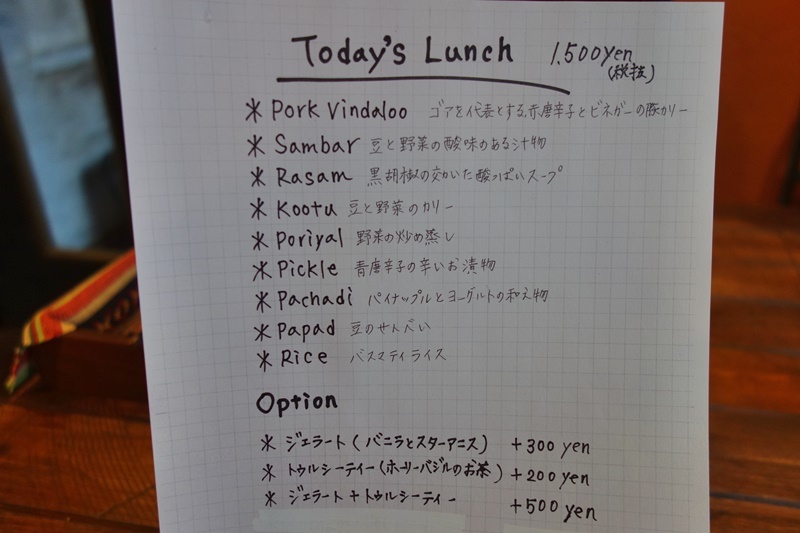 Today's Lunch 1.500yen
(税抜)
* Pork Vindaloo ゴアを代表とする、赤唐辛子とビネガーの豚カリー
* Sambar 豆と野菜の酸味のある汁物
* Rasam 黒胡椒の効いた酸っぱいスープ
* Kootu 豆と野菜のカリー
* Poriyal 野菜の炒め蒸し
* Pickle 青唐辛子の辛いお漬物
* Pachadi パイナップルとヨーグルトの和え物
* Papad 豆のせんべい
* Rice バスマティライス
Option
* ジェラート(バニラとスターアニス) +300 yen
* トゥルシーティー(ホーリーバジルのお茶) +200 yen
* ジェラート+トゥルシーティー +500 yen